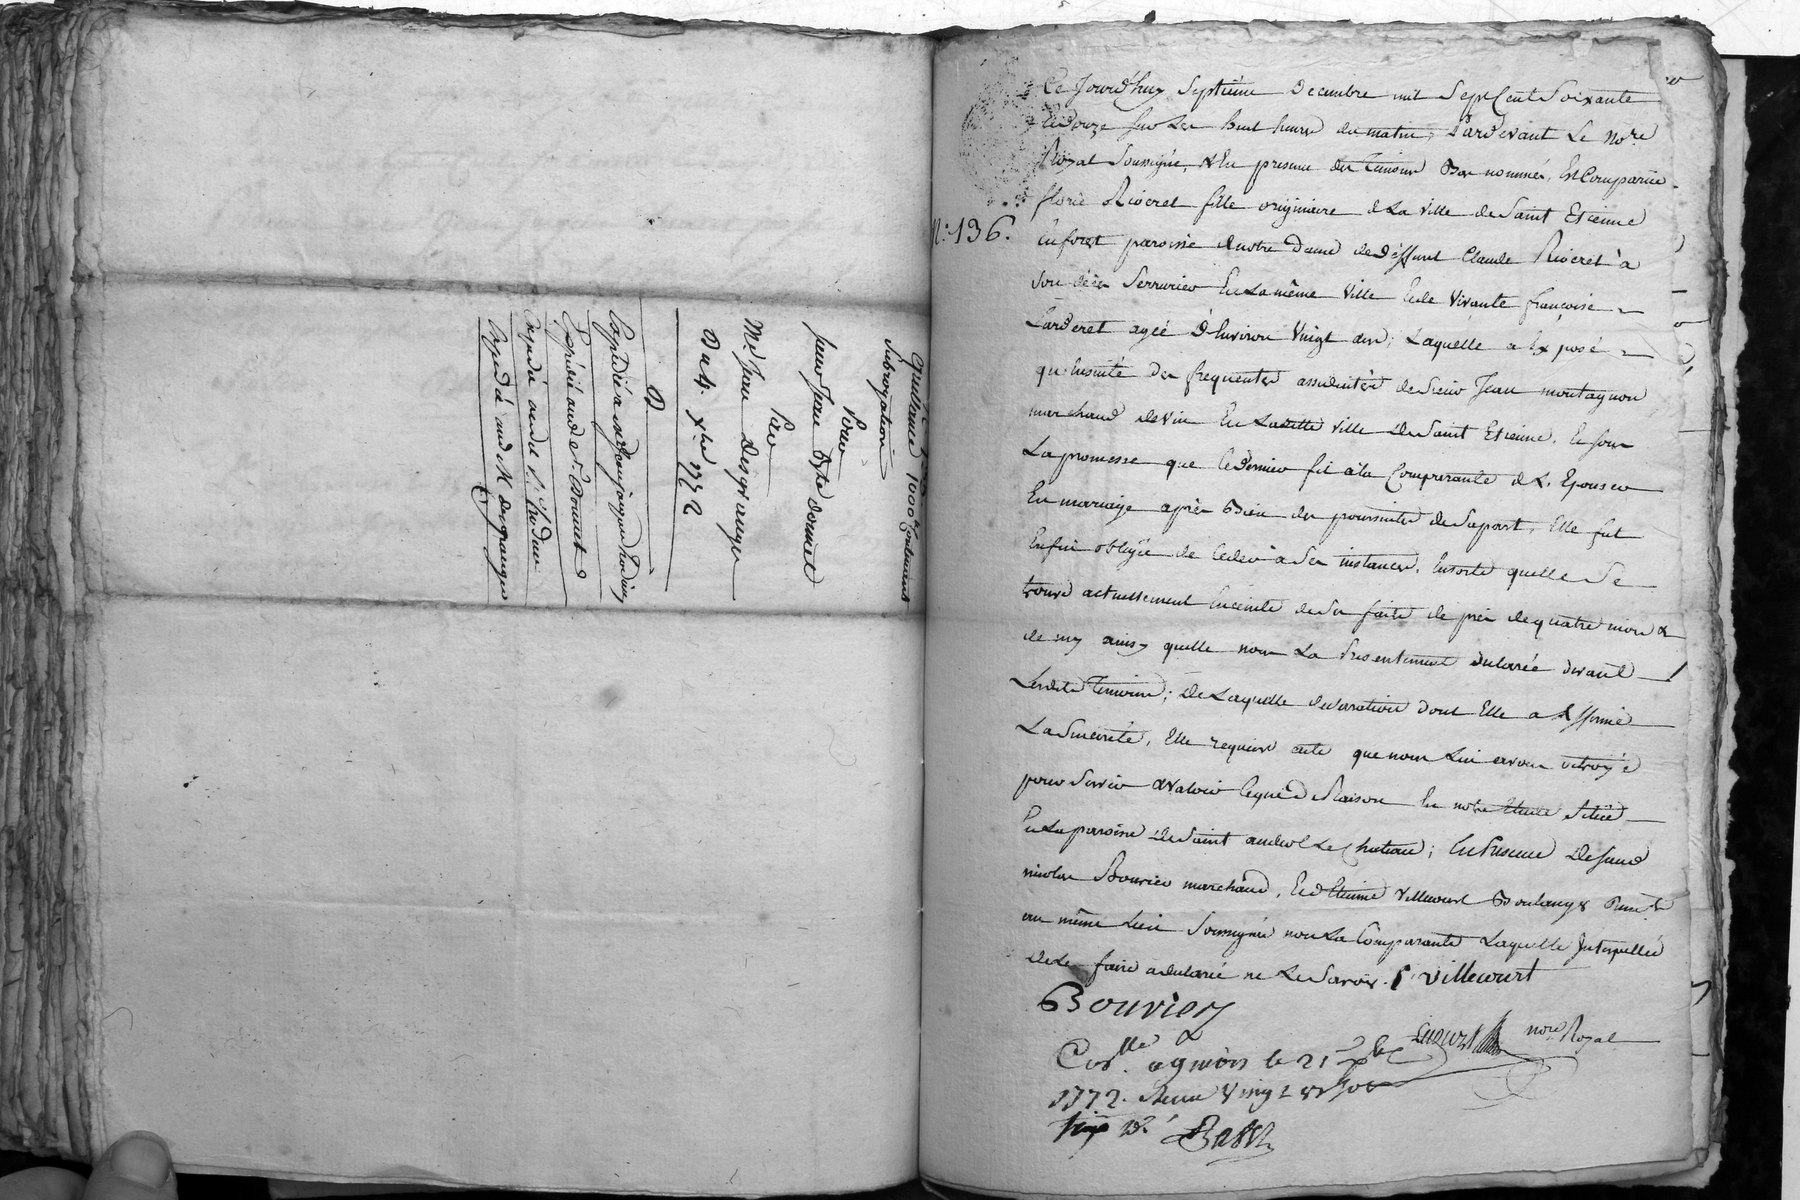 Quittance 1000ᵗᵗ Contenant
Subrogation
Pour
sieur Jean Bpte donnet
Par
Mᵉ. Jean desgranges
Du 4. Xbre 1772
Expédié aud sr. donnet
Expédié aud M. desgranges
N.° 136.
Ce Jourd'huy Septieme decembre mil Sept Cent Soixante
et douze sur Les huit heures du matin, Pardevant Le No.re
Royal Soussigné, & En presence des temoins Bas nommés, Est Comparüe
florie Rioeret fille originaire de La Ville de Saint Etienne
En forest paroisse de notre Dame de deffunt Claude Rioeret à
son décès Serrurier En La même Ville et de Vivante françoise
Larderet agée d'Environ Vingt ans; Laquelle a Exposé
qu'Ensuite des frequentes assiduités de Sieur Jean montagnon
marchand de Vin En Laditte Ville de Saint Etienne, et sous
La promesse que ce dernier fit a la Comparante de L'Epouser
En mariage après Bien des poursuites de Sa part, Elle fut
Enfin obligée de Ceder à Ses instances. Ensorte quelle Se
trouve actuellement Enceinte de Ses faits de près de quatre mois &
demy ainsy quelle nous La Presentement declarée devant
Lesdits Temoins; de Laquelle declaration dont Elle a Affirmé
La Sincerité, Elle requiert acte que nous Lui avons octroyé
pour Servir & Valoir Ceque de Raison En notre Etude Située
En La paroisse de Saint andeol Le Chateau; En Presence de Sieurs
nicolas Bouvier marchand, Et d'Etienne Villecourt Boulanger
au même Lieu Soussignés non La Comparante Laquelle Interpellée
de Le faire a declaré ne Le Savoir. E Villecourt
Bouvier
nore Royal
Con.lle a givors le 21 Xbre
1772. Reçu Vingt &